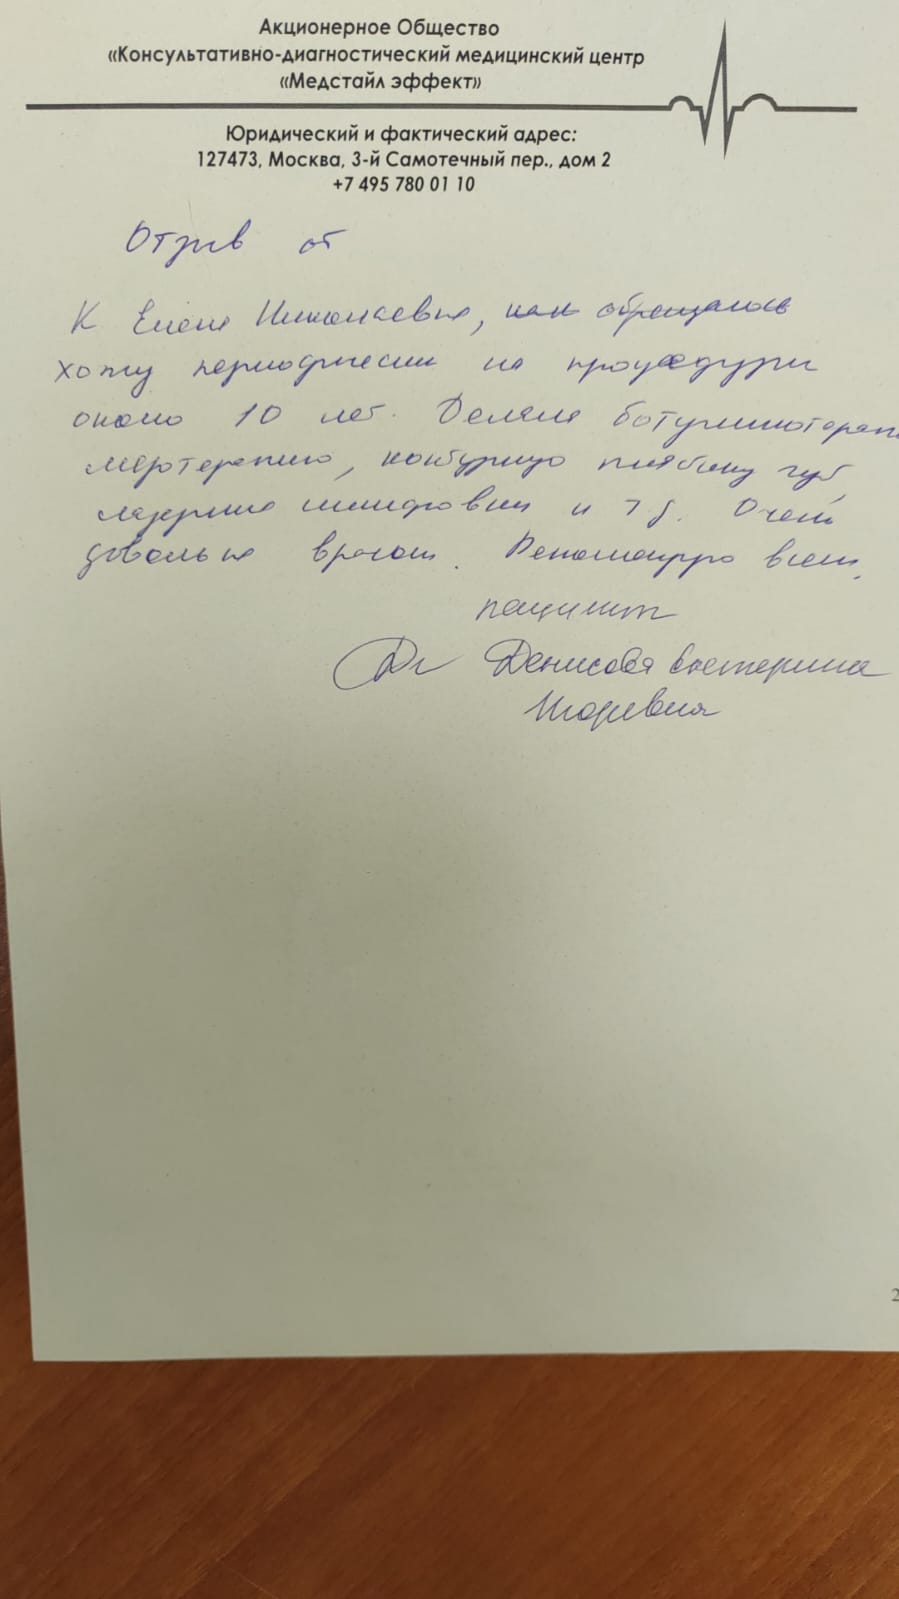 Акционерное Общество
«Консультативно-диагностический медицинский центр
«Медстайл эффект»
Юридический и фактический адрес:
127473, Москва, 3-й Самотечный пер., дом 2
+7 495 780 01 10
Отзыв от
К Елене Николаевне, обращалась
хожу периодически на процедуры
около 10 лет. Делала ботулинотерапи
мезотерапию, контурную пластику губ,
лазерные шлифовки и т д. Очень
довольна врачом. Рекомендую всем.
пациент
Денисова Екатерина
Игоревна
2